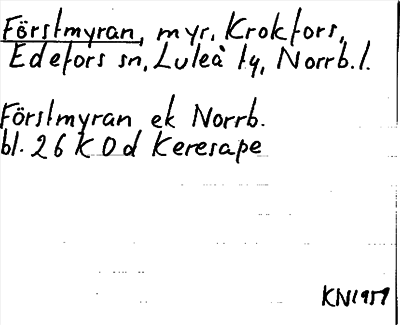 Förstmyran, myr, Krokfors,
Edefors sn, Luleå ty, Norrb. l.
Förstmyran ek Norrb.
bl. 26 K 0 d Keresape
KN1959